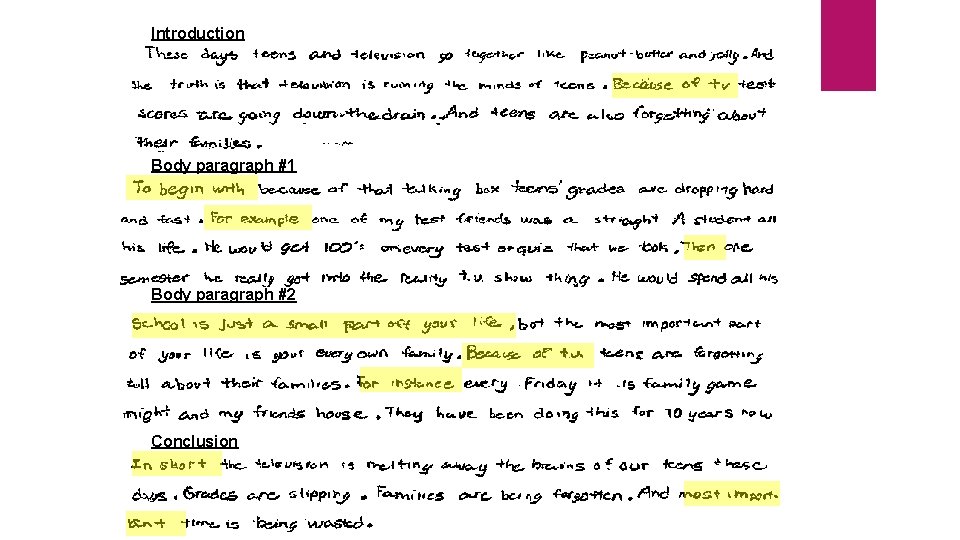 Introduction
These days teens and television go together like peanut-butter and jelly. And
the truth is that television is ruining the minds of teens. Because of tv test
scores are going down the drain. And teens are also forgetting about
their families.
Body paragraph #1
To begin with because of that talking box teens' grades are dropping hard
and fast. For example one of my best friends was a straight A student all
his life. He would get 100's on every test or quiz that we took. Then one
semester he really got into the reality T.V. show thing. He would spend all his
Body paragraph #2
School is just a small part off your life, but the most important part
of your life is your every own family. Because of t.v. teens are forgetting
all about their families. For instance every Friday it is family game
night and my friends house. They have been doing this for 10 years now
Conclusion
In short the television is melting away the brains of our teens these
days. Grades are slipping. Families are being forgotten. And most import-
tant time is being wasted.